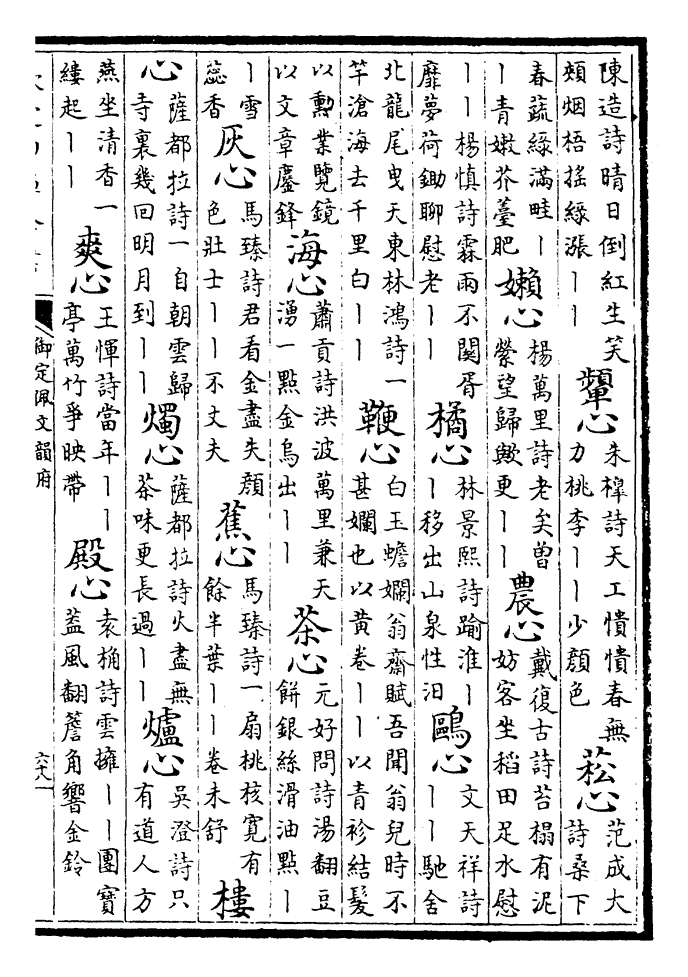 陳造詩晴日倒紅生笑
頰烟梧搖綠漲丨丨
顰心
朱槔詩天工憒憒春無
力桃李丨丨少顏色
菘心
范成大
詩桑下
春蔬綠滿畦丨
丨青嫩芥薹肥
嬾心
楊萬里詩老矣曽
縈望歸歟更丨丨
農心
戴復古詩苔榻有泥
妨客坐稻田足水慰
丨丨楊慎詩霖雨不闋胥
靡夢荷鋤聊慰老丨丨
橘心
林景熙詩踰淮丨
丨移出山泉性汨
鷗心
文天祥詩
丨丨馳舍
北龍尾曳天東林鴻詩一
竿滄海去千里白丨丨
鞭心
白玉蟾嬾翁齋賦吾聞翁兒時不
甚嬾也以黄卷丨丨以青衿結髪
以勲業覽鏡
以文章鏖鋒
海心
蕭貢詩洪波萬里兼天
湧一點金烏出丨丨
茶心
元好問詩湯翻豆
餅銀絲滑油點丨
丨雪
蕊香
灰心
馬臻詩君看金盡失顔
色壯士丨丨不丈夫
蕉心
馬臻詩一扇桃核寛有
餘半葉丨丨卷未舒
樓
心
薩都拉詩一自朝雲歸
寺裏幾回明月到丨丨
燭心
薩都拉詩火盡無
茶味更長過丨丨
爐心
吳澄詩只
有道人方
燕坐清香一
縷起丨丨
爽心
王惲詩當年丨丨
亭萬竹爭映帶
殿心
袁桷詩雲擁丨丨團寶
葢風翻簷角響金鈴
御定佩文韻府